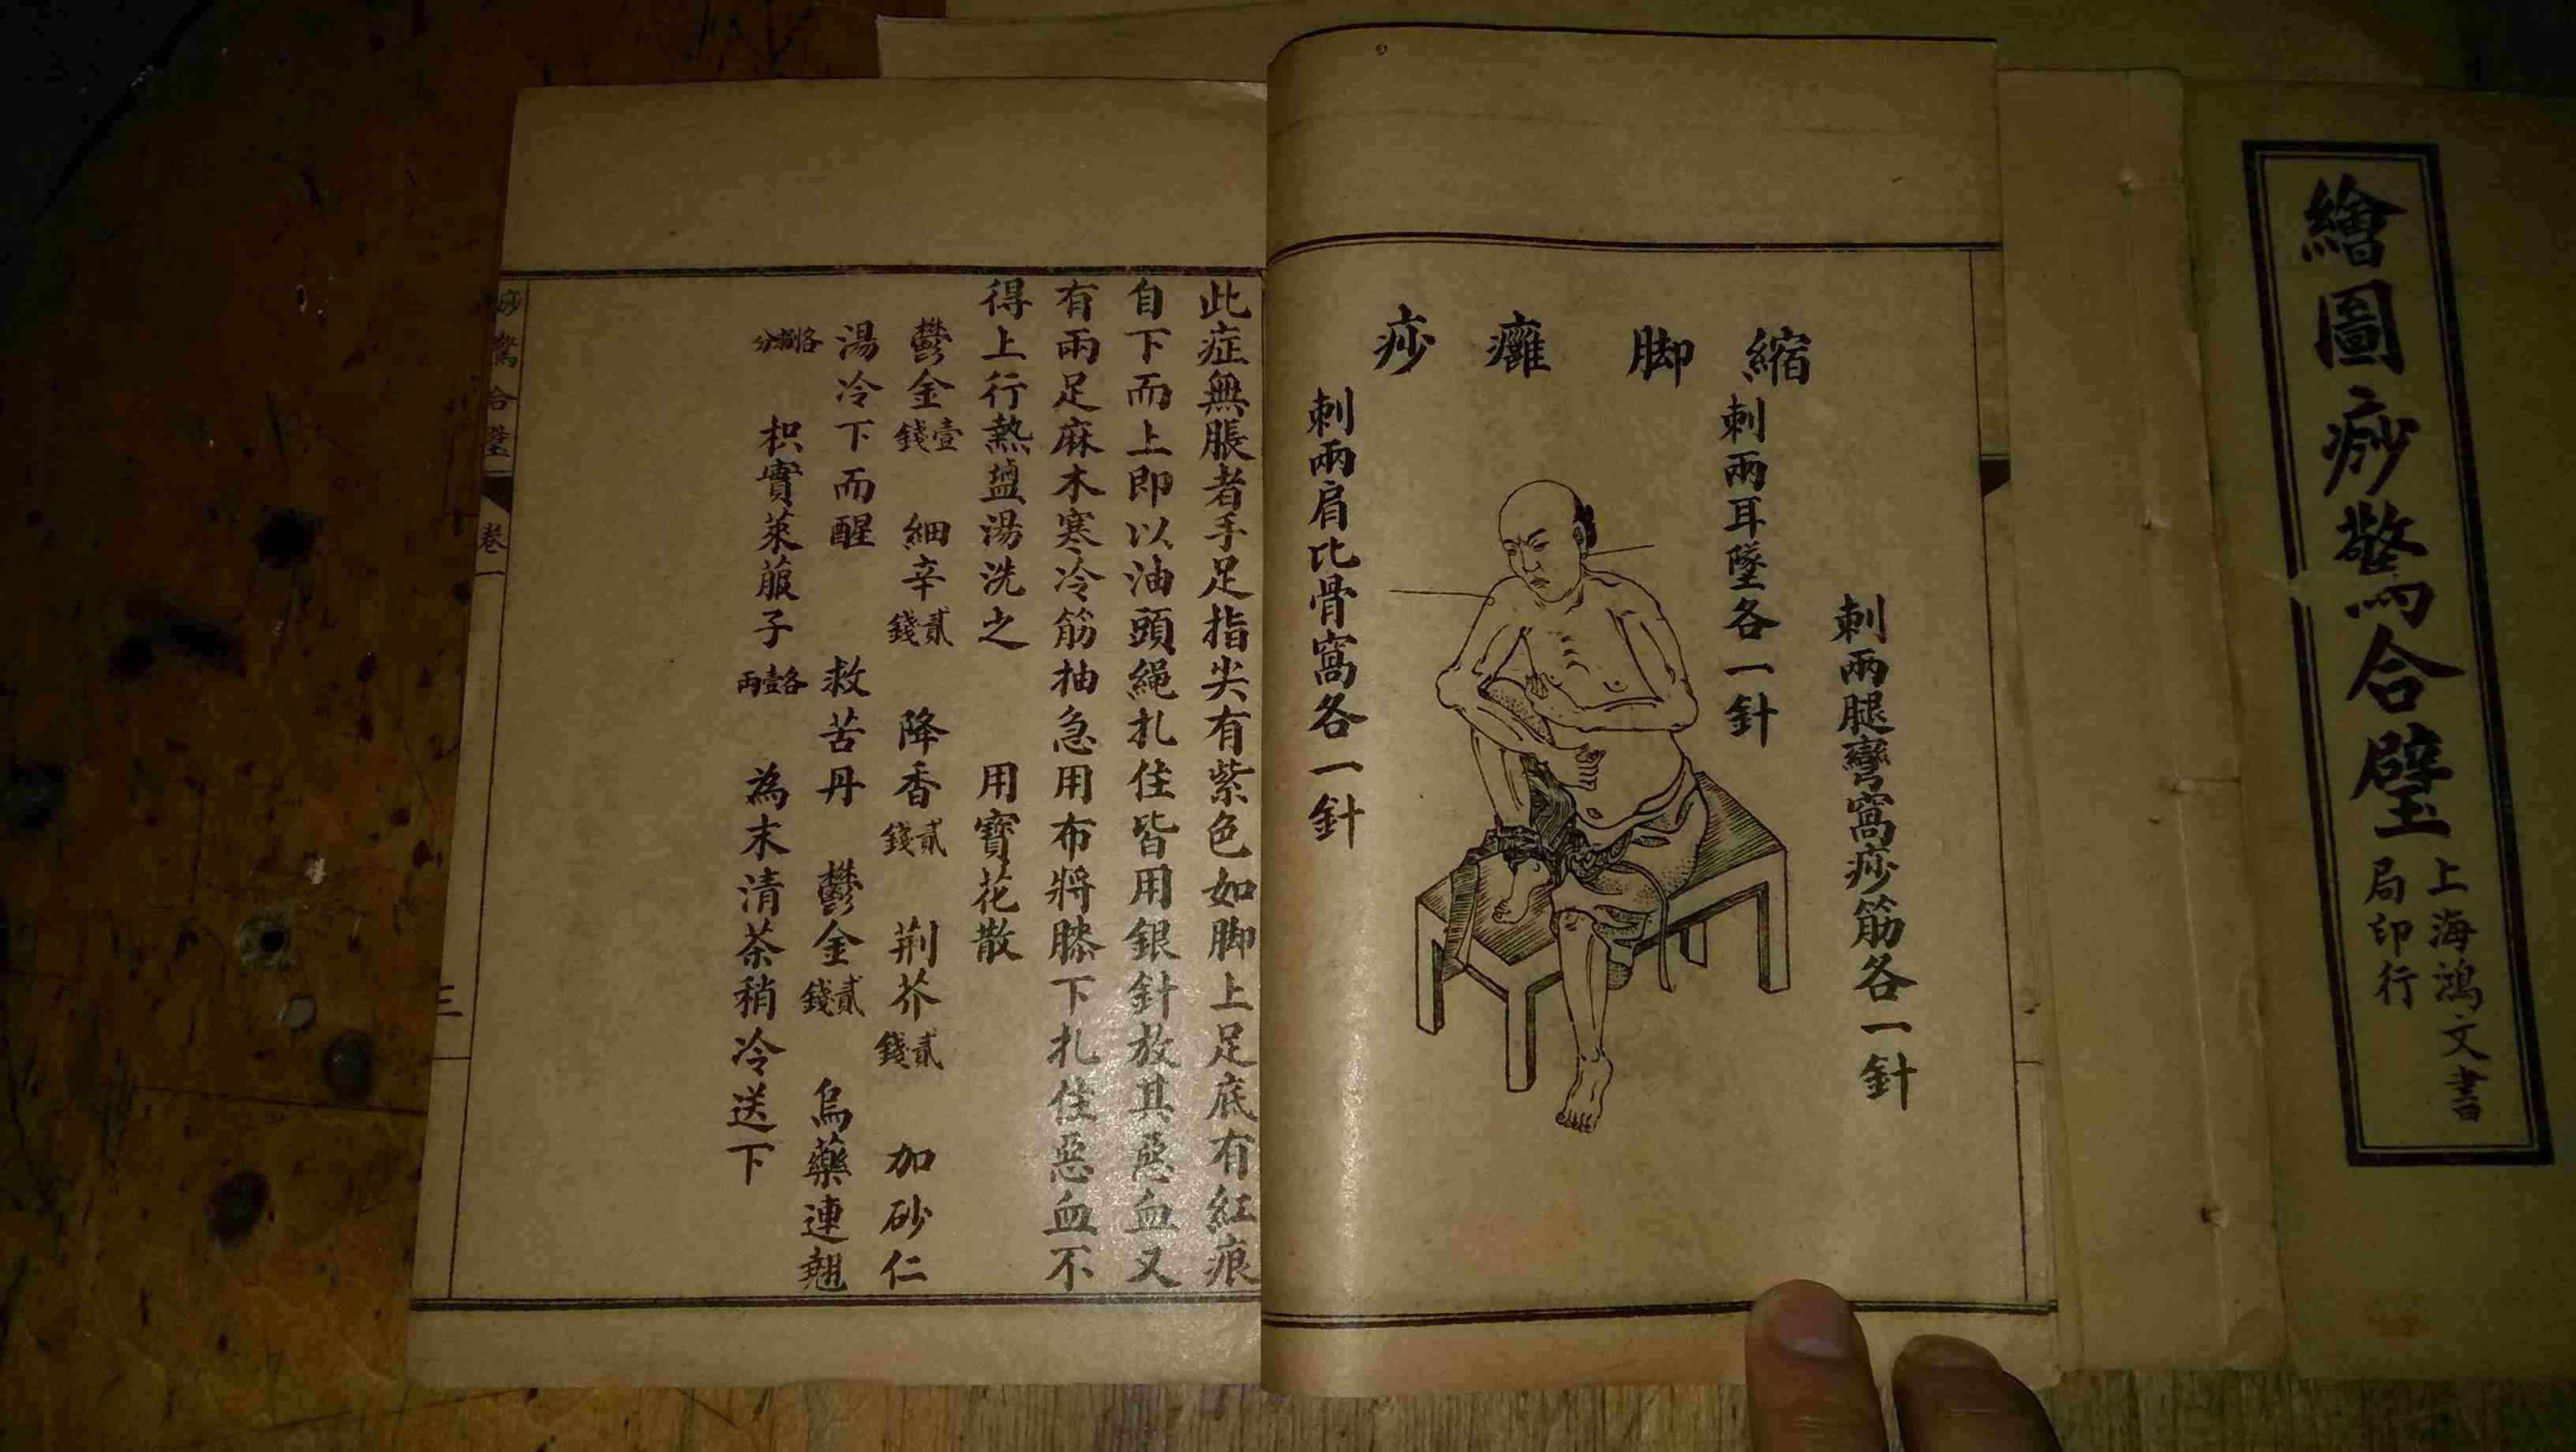 繪圖痧驚合璧
上海鴻文書
局印行
縮脚癱痧
刺兩腿彎窩痧筋各一針
刺兩耳墜各一針
刺兩肩比骨窩各一針
此症無脹者手足指尖有紫色如脚上足底有紅痕
自下而上即以油頭繩扎住皆用銀針放其惡血又
有兩足麻木寒冷筋抽急用布將膝下扎住惡血不
得上行熱鹽湯洗之 用寶花散
鬱金壹錢 細辛貳錢 降香貳錢 荆芥貳錢 加砂仁
湯冷下而醒 救苦丹 鬱金貳錢 烏藥連翹
各捌分 枳實萊菔子各壹兩 為末清茶稍冷送下
痧驚合璧 卷一
三